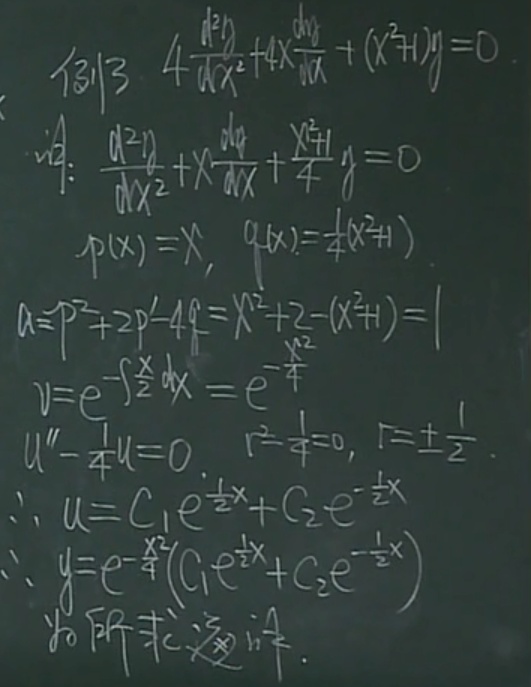 例3 4 d²y/dx² + 4x dy/dx + (x²+1)y = 0
解: d²y/dx² + x dy/dx + (x²+1)/4 y = 0
p(x) = x, q(x) = 1/4(x²+1)
a = p² + 2p' - 4q = x² + 2 - (x²+1) = 1
v = e^(-∫x/2 dx) = e^(-x²/4)
u'' - 1/4 u = 0 r² - 1/4 = 0, r = ± 1/2.
∴ u = C₁e^(1/2 x) + C₂e^(-1/2 x)
∴ y = e^(-x²/4)(C₁e^(1/2 x) + C₂e^(-1/2 x))
为所求通解.